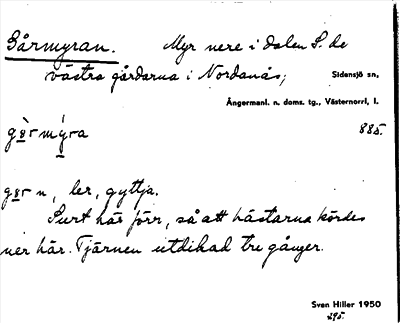 Gårmyran. Myr nere i dalen S. de
västra gårdarna i Nordanås;
Sidensjö sn,
Ångermanl. n. doms. tg., Västernorrl. l.
gɑ̀rmýra 885.
går n, ler, gyttja.
Surt här förr, så att hästarna kördes
ner här. Tjärnen utdikad tre gånger.
Sven Hiller 1950
295.